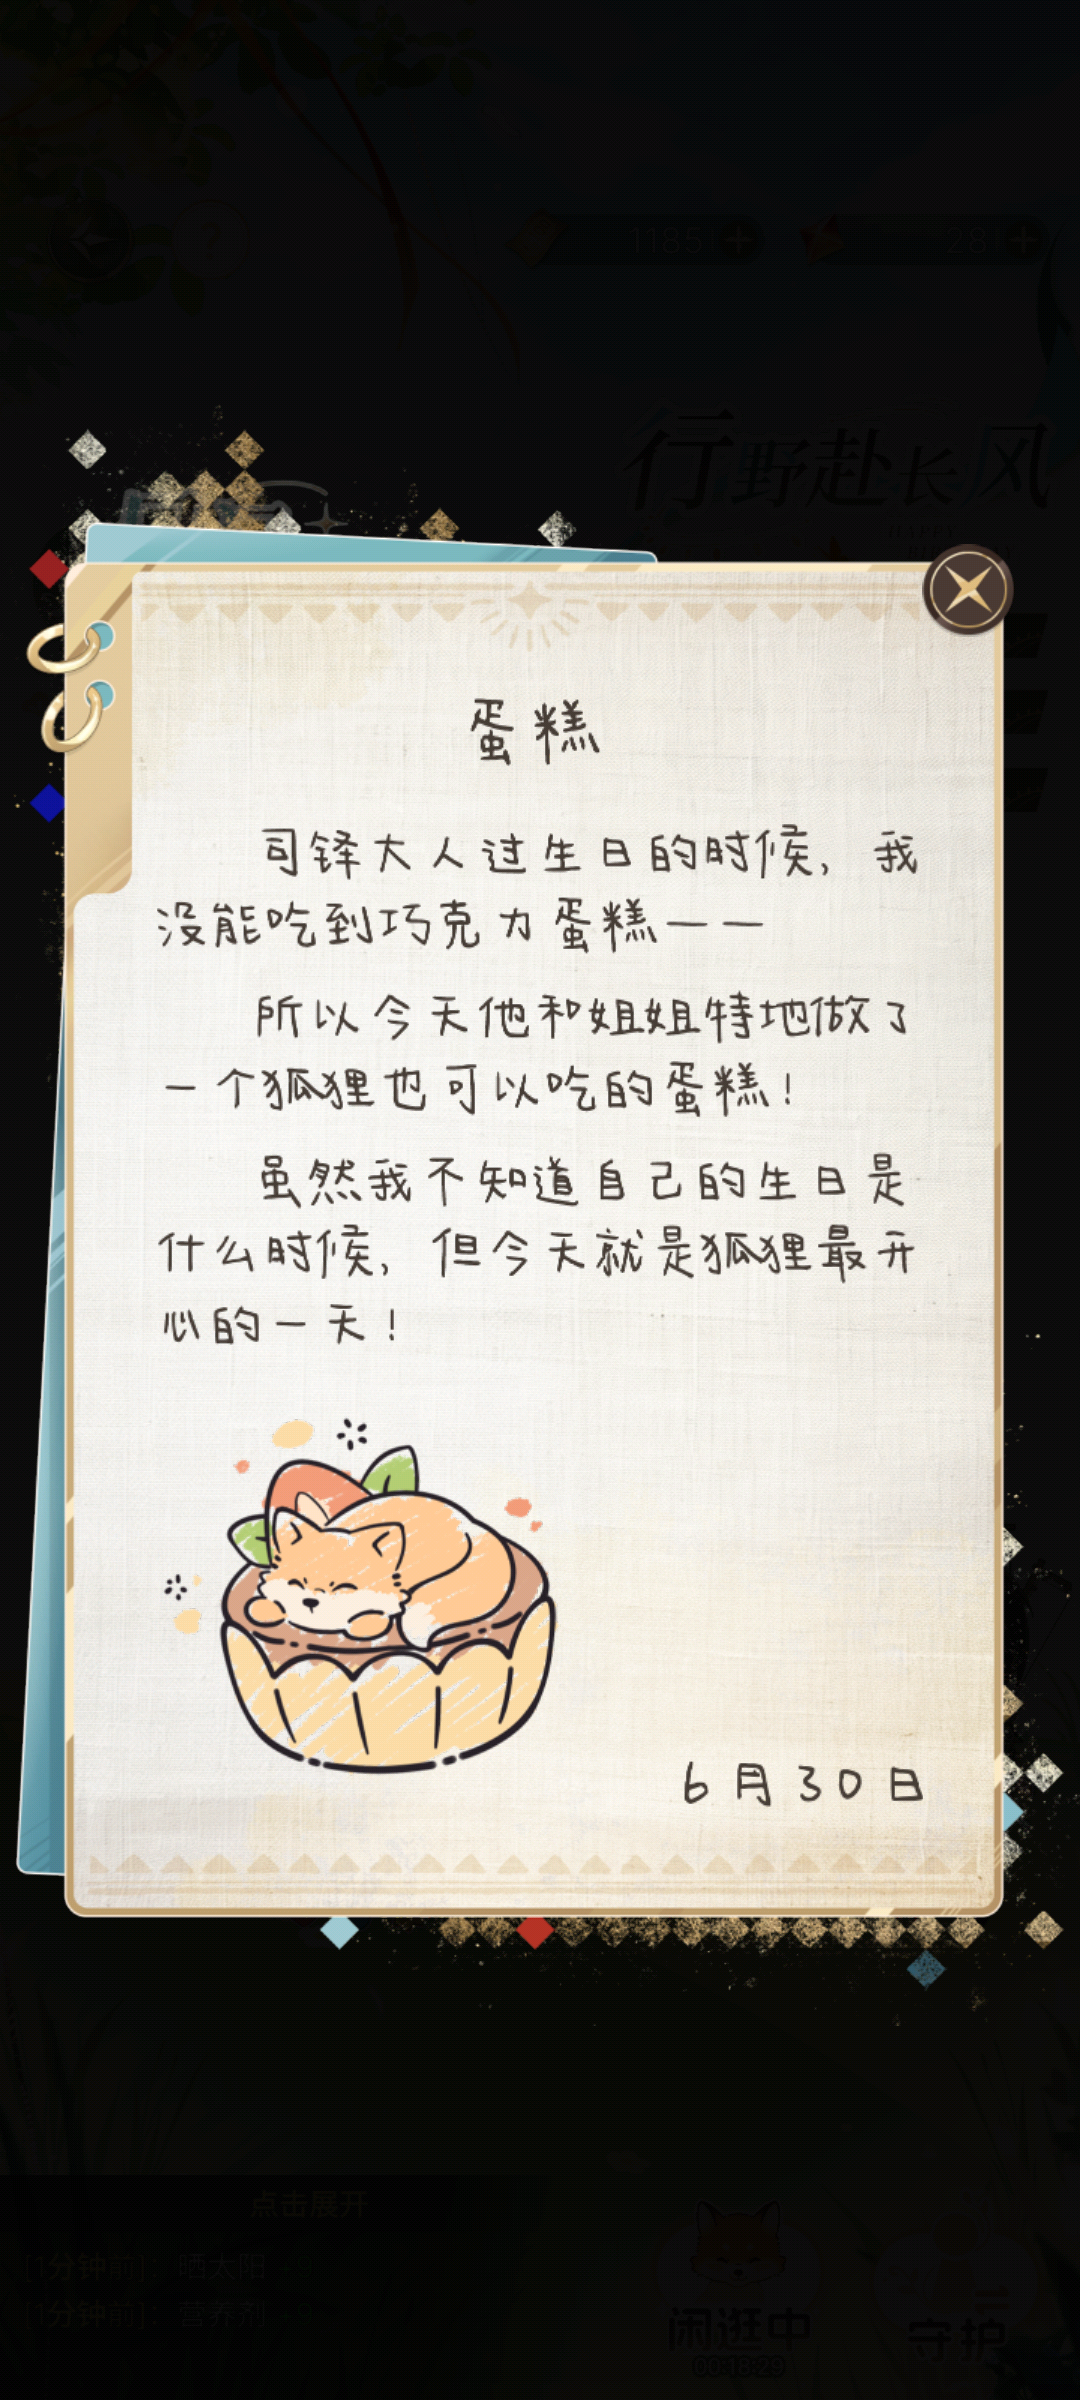 1185
28
行野赴长风
蛋糕
司铎大人过生日的时候，我
没能吃到巧克力蛋糕——
所以今天他和姐姐特地做了
一个狐狸也可以吃的蛋糕！
虽然我不知道自己的生日是
什么时候，但今天就是狐狸最开
心的一天！
6月30日
点击展开
[1分钟前]：晒太阳
[1分钟前]：营养剂
闲逛中
守护
00:18:29